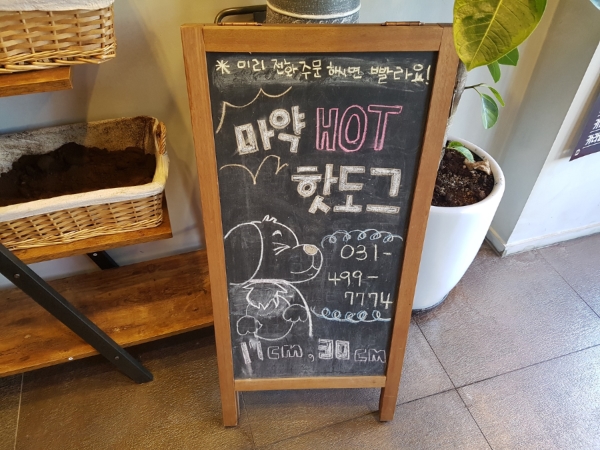 * 미리 전화 주문 하시면 빨라요!
마약 HOT
핫도그
031-
499-
7774
17cm, 30cm